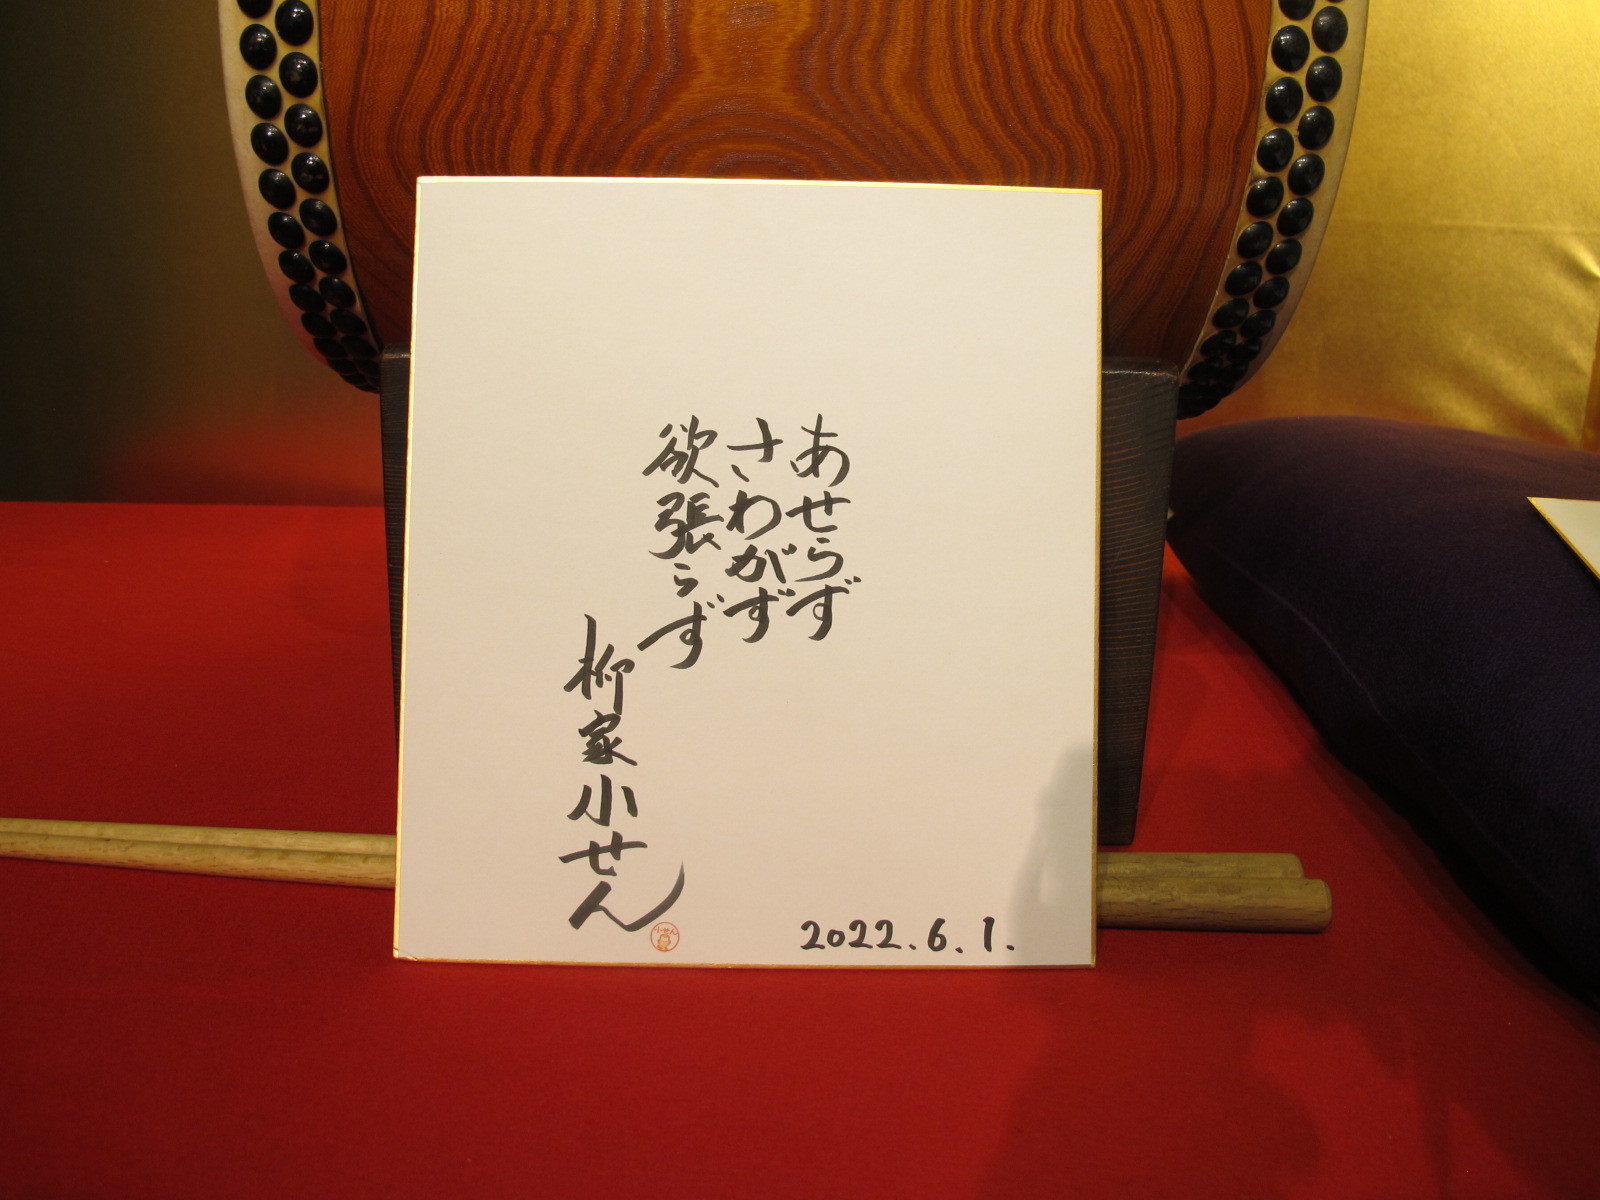 あせらず
さわがず
欲張らず
柳家小せん
小せん
2022.6.1.